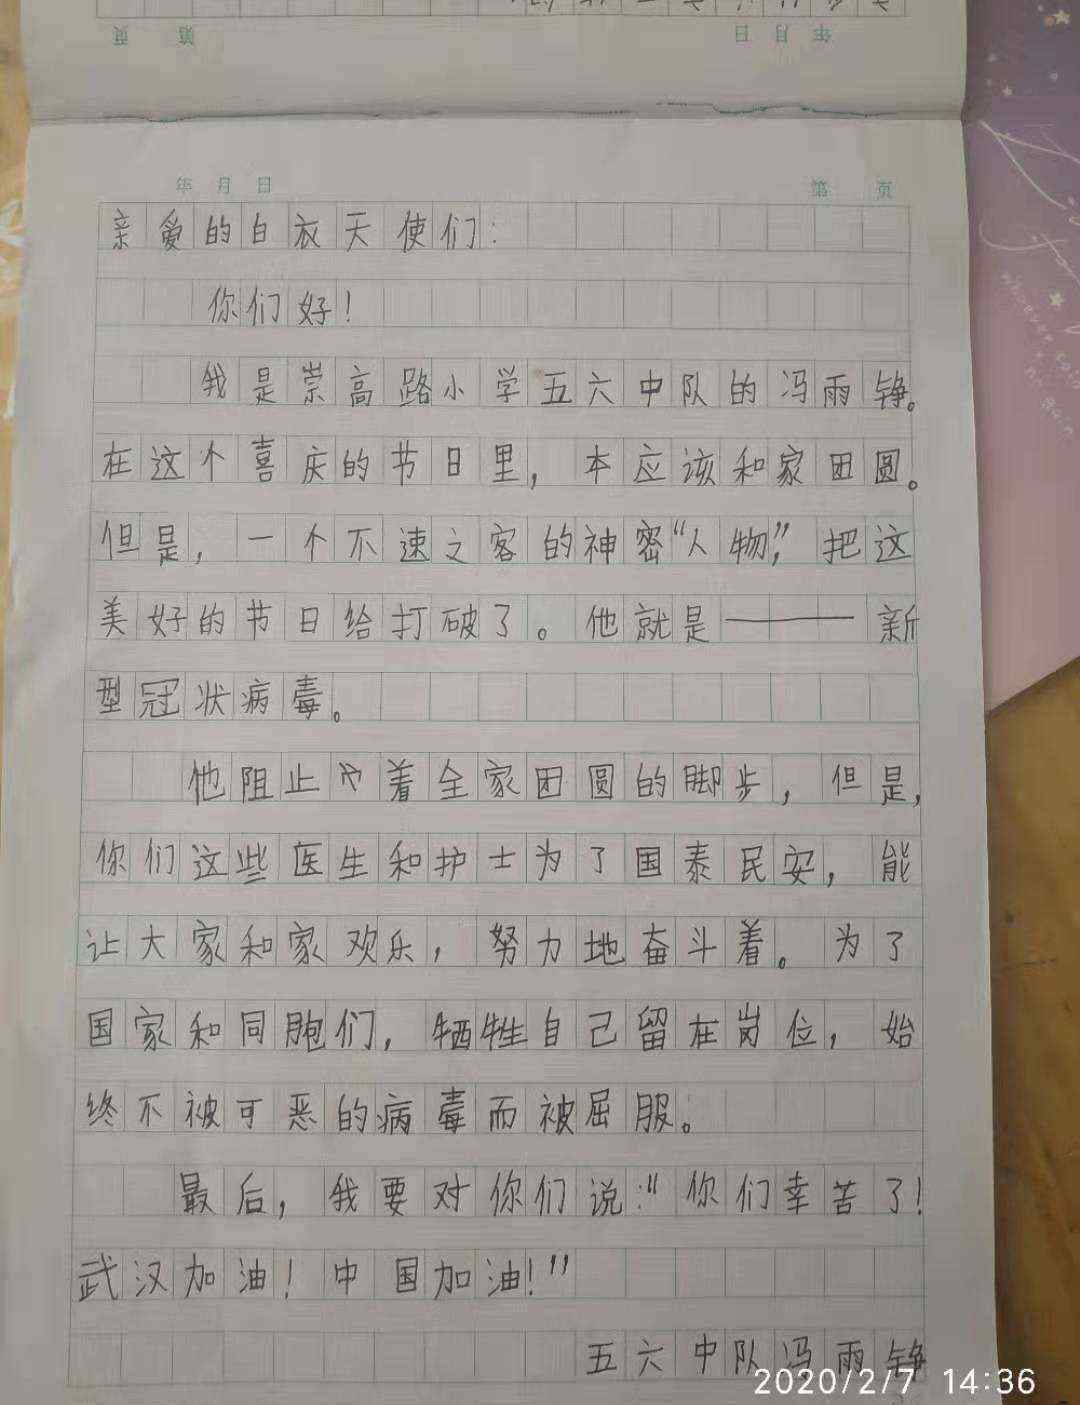 页 第 日 月 年
年 月 日 第 页
亲爱的白衣天使们:
你们好!
我是崇高路小学五六中队的冯雨铮。
在这个喜庆的节日里,本应该和家团圆。
但是,一个不速之客的神密“人物”,把这
美好的节日给打破了。他就是——新
型冠状病毒。
他阻止着全家团圆的脚步,但是,
你们这些医生和护士为了国泰民安,能
让大家和家欢乐,努力地奋斗着。为了
国家和同胞们,牺牲自己留在岗位,始
终不被可恶的病毒而被屈服。
最后,我要对你们说:"你们幸苦了!
武汉加油!中国加油!”
五六中队冯雨铮
2020/2/7 14:36